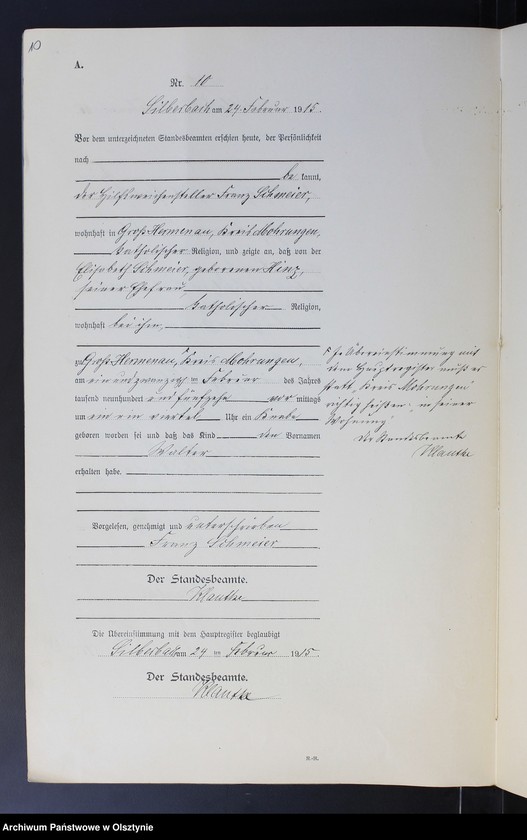 10
A.
Nr. 10
Silberbach am 24. Februar 1915.
Vor dem unterzeichneten Standesbeamten erschien heute, der Persönlichkeit
nach
be kannt,
der Hilfsweichensteller Franz Schmeier,
wohnhaft in Groß Hermenau, Kreis Mohrungen,
katholischer Religion, und zeigte an, daß von der
Elisabeth Schmeier, geborenen Hinz,
seiner Ehefrau,
katholischer Religion,
wohnhaft bei ihm,
zu Groß Hermenau, Kreis Mohrungen,
am ein und zwanzigsten Februar des Jahres
tausend neunhundert und fünfzehn vor mittags
um ein ein viertel Uhr ein Knabe
geboren worden sei und daß das Kind den Vornamen
Walter
erhalten habe.
Vorgelesen, genehmigt und unterschrieben
Franz Schmeier
Der Standesbeamte.
Klautke
Die Übereinstimmung mit dem Hauptregister beglaubigt
Silberbach am 24 ten Februar 1915.
Der Standesbeamte.
Klautke
B.-N.
Übereinstimmung mit
dem Hauptregister muß es
statt "Kreis Mohrungen"
richtig heißen: "in seiner
Wohnung"
Der Standesbeamte
Klautke
Archiwum Państwowe w Olsztynie